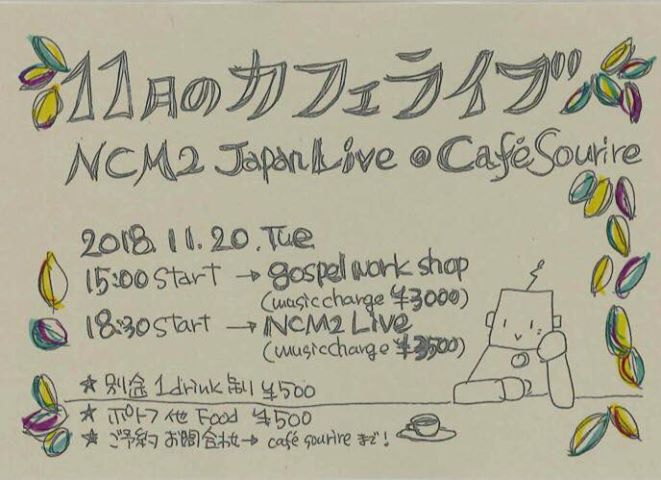 11月のカフェライブ
NCM2 Japan Live @ Café Sourire
2018.11.20.Tue
15:00 Start → gospel work shop
(music charge ¥3000)
18:30 Start → NCM2 Live
(music charge ¥3500)
★ 別途 1drink 制 ¥500
★ ポトフ 他 Food ¥500
★ ご予約 お問合わせ→ café sourire まで!